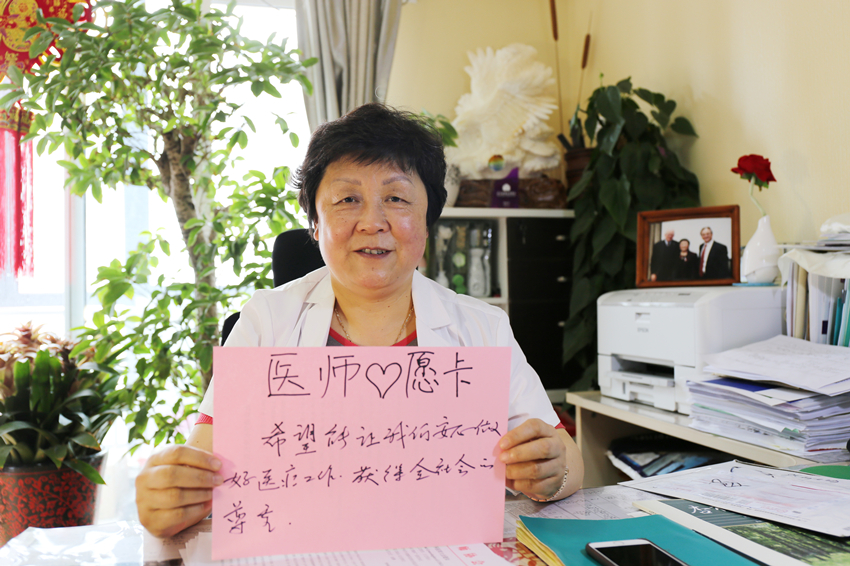 医师♡愿卡
希望能让我们安心做
好医疗工作.获得全社会的
尊重.